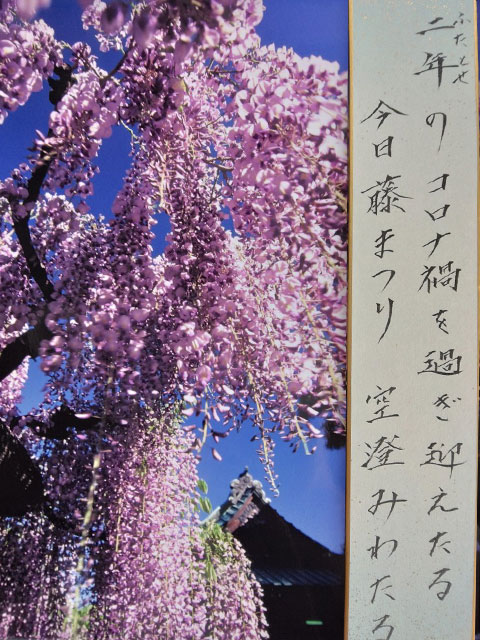 二年のコロナ禍を過ぎ迎えたる
ふたとせ
今日藤まつり 空澄みわたる